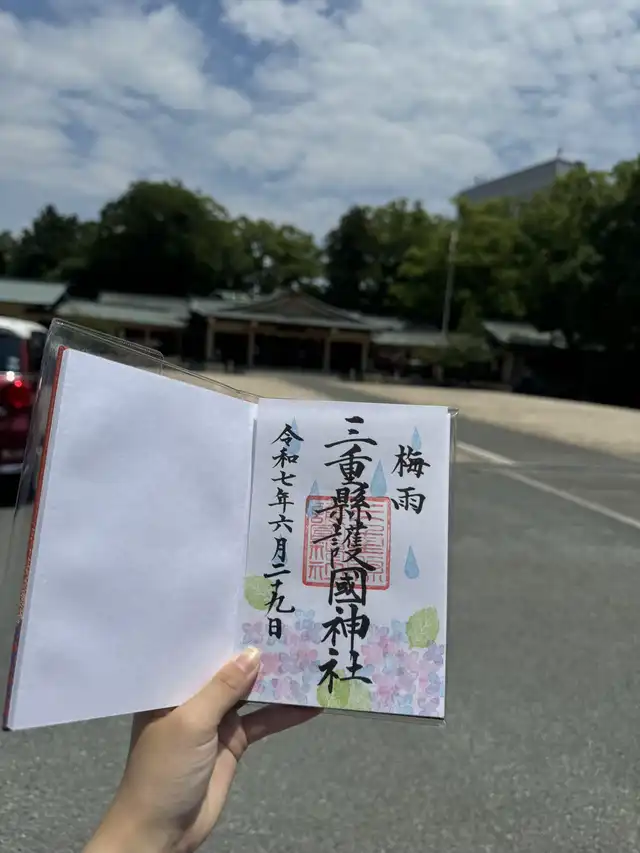 梅雨
三重縣護國神社
令和七年六月二十九日